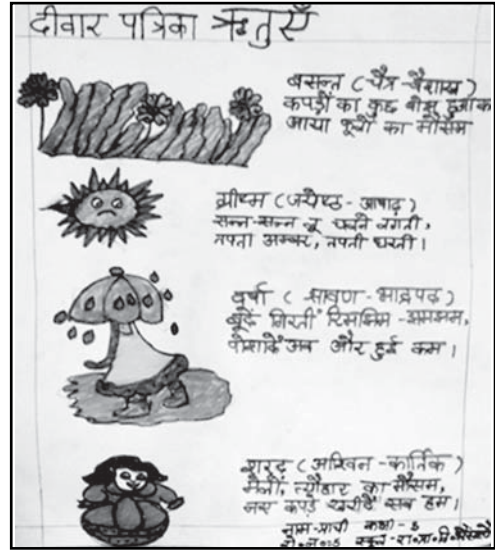 दीवार पत्रिका ऋतुएँ
बसन्त (चैत्र-वैशाख)
कपड़ों का कुछ बोझ हुआ क
आया फूलों का मौसम
ग्रीष्म (ज्येष्ठ - आषाढ़)
सन्न-सन्न लू चलने लगती,
तपता अम्बर, तपती धरती।
वर्षा (श्रावण - भाद्रपद)
बूँदें गिरतीं रिमझिम-झमझम,
पोशाकें अब और हुई कम।
शरद (अश्विन - कार्तिक)
मेलों, त्यौहार का मौसम,
नए कपड़े खरीदें सब हम।
नाम-प्राची कक्षा-
रो.न.-5 स्कूल-रा.प्रा.वि.